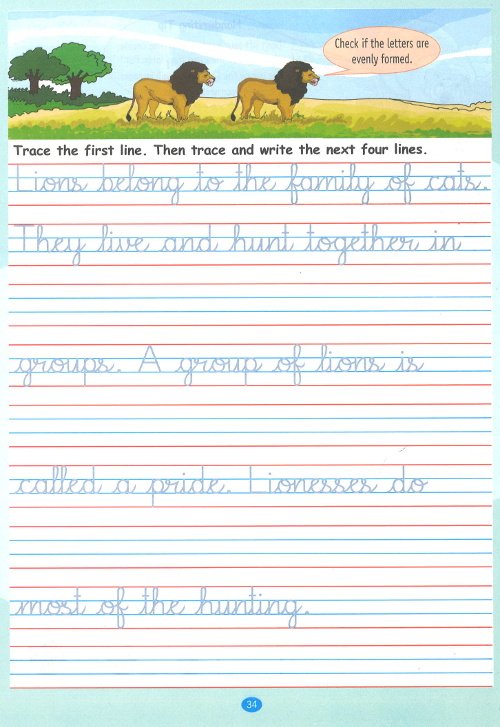 Check if the letters are
evenly formed.
Trace the first line. Then trace and write the next four lines.
Lions belong to the family of cats.
They live and hunt together in
groups. A group of lions is
called a pride. Lionesses do
most of the hunting.
34